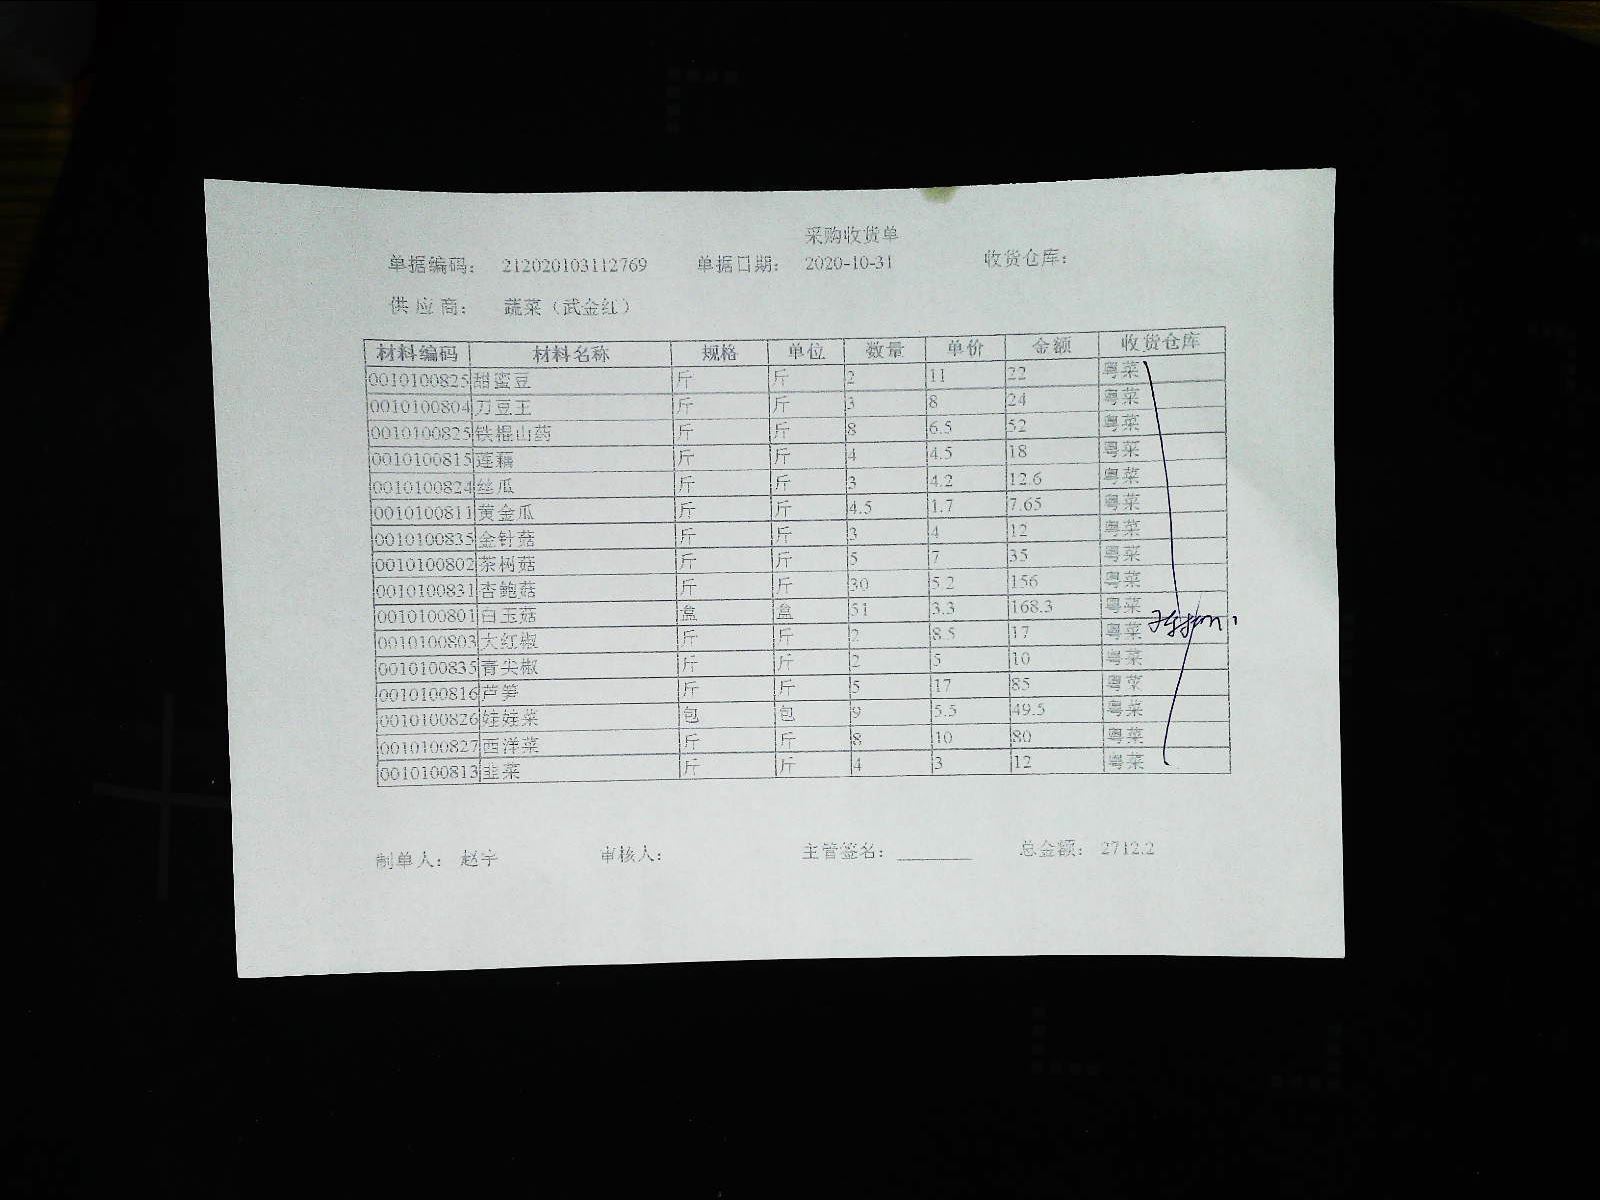 采购收货单
单据编码： 212020103112769 单据日期： 2020-10-31 收货仓库：
供应商： 蔬菜（武金红）
材料编码 材料名称 规格 单位 数量 单价 金额 收货仓库
0010100825 甜蜜豆 斤 斤 2 11 22 粤菜
0010100804 刀豆王 斤 斤 3 8 24 粤菜
0010100825 铁棍山药 斤 斤 8 6.5 52 粤菜
0010100815 莲藕 斤 斤 4 4.5 18 粤菜
0010100824 丝瓜 斤 斤 3 4.2 12.6 粤菜
0010100811 黄金瓜 斤 斤 4.5 1.7 7.65 粤菜
0010100835 金针菇 斤 斤 3 4 12 粤菜
0010100802 茶树菇 斤 斤 5 7 35 粤菜
0010100831 杏鲍菇 斤 斤 30 5.2 156 粤菜
0010100801 白玉菇 盒 盒 51 3.3 168.3 粤菜
0010100803 大红椒 斤 斤 2 8.5 17 粤菜
0010100835 青尖椒 斤 斤 2 5 10 粤菜
0010100816 芦笋 斤 斤 5 17 85 粤菜
0010100826 娃娃菜 包 包 9 5.5 49.5 粤菜
0010100827 西洋菜 斤 斤 8 10 80 粤菜
0010100813 韭菜 斤 斤 4 3 12 粤菜
制单人： 赵宇 审核人： 主管签名： 总金额： 2712.2